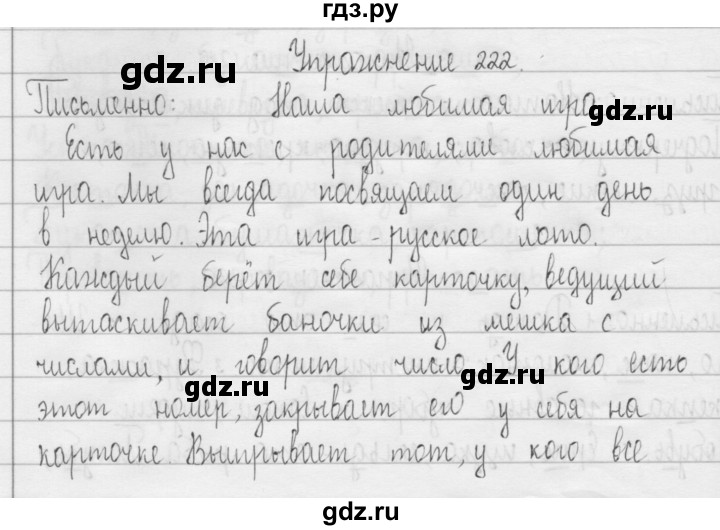 гдз.ру
Упражнение 222.
gdz.ru gdz.ru
Письменно: Наша любимая игра.
Есть у нас с родителями любимая
gdz.ru
игра. Мы всегда посвящаем один день
в неделю. Эта игра - русское лото.
gdz.ru
Каждый берёт себе карточку, ведущий
вытаскивает баночки из мешка с
числами, и говорит число. У кого есть
gdz.ru gdz.ru
этот номер, закрывает его у себя на
карточке. Выигрывает тот, у кого все
gdz.ru